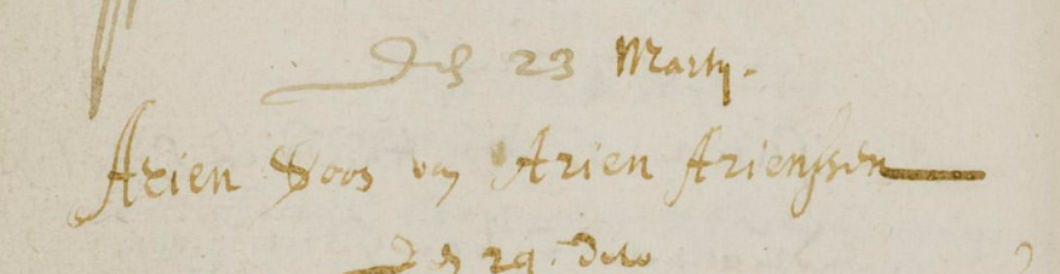 Den 23 Martij.
Arien Soon van Arien Arienssen
Den 29. Dito